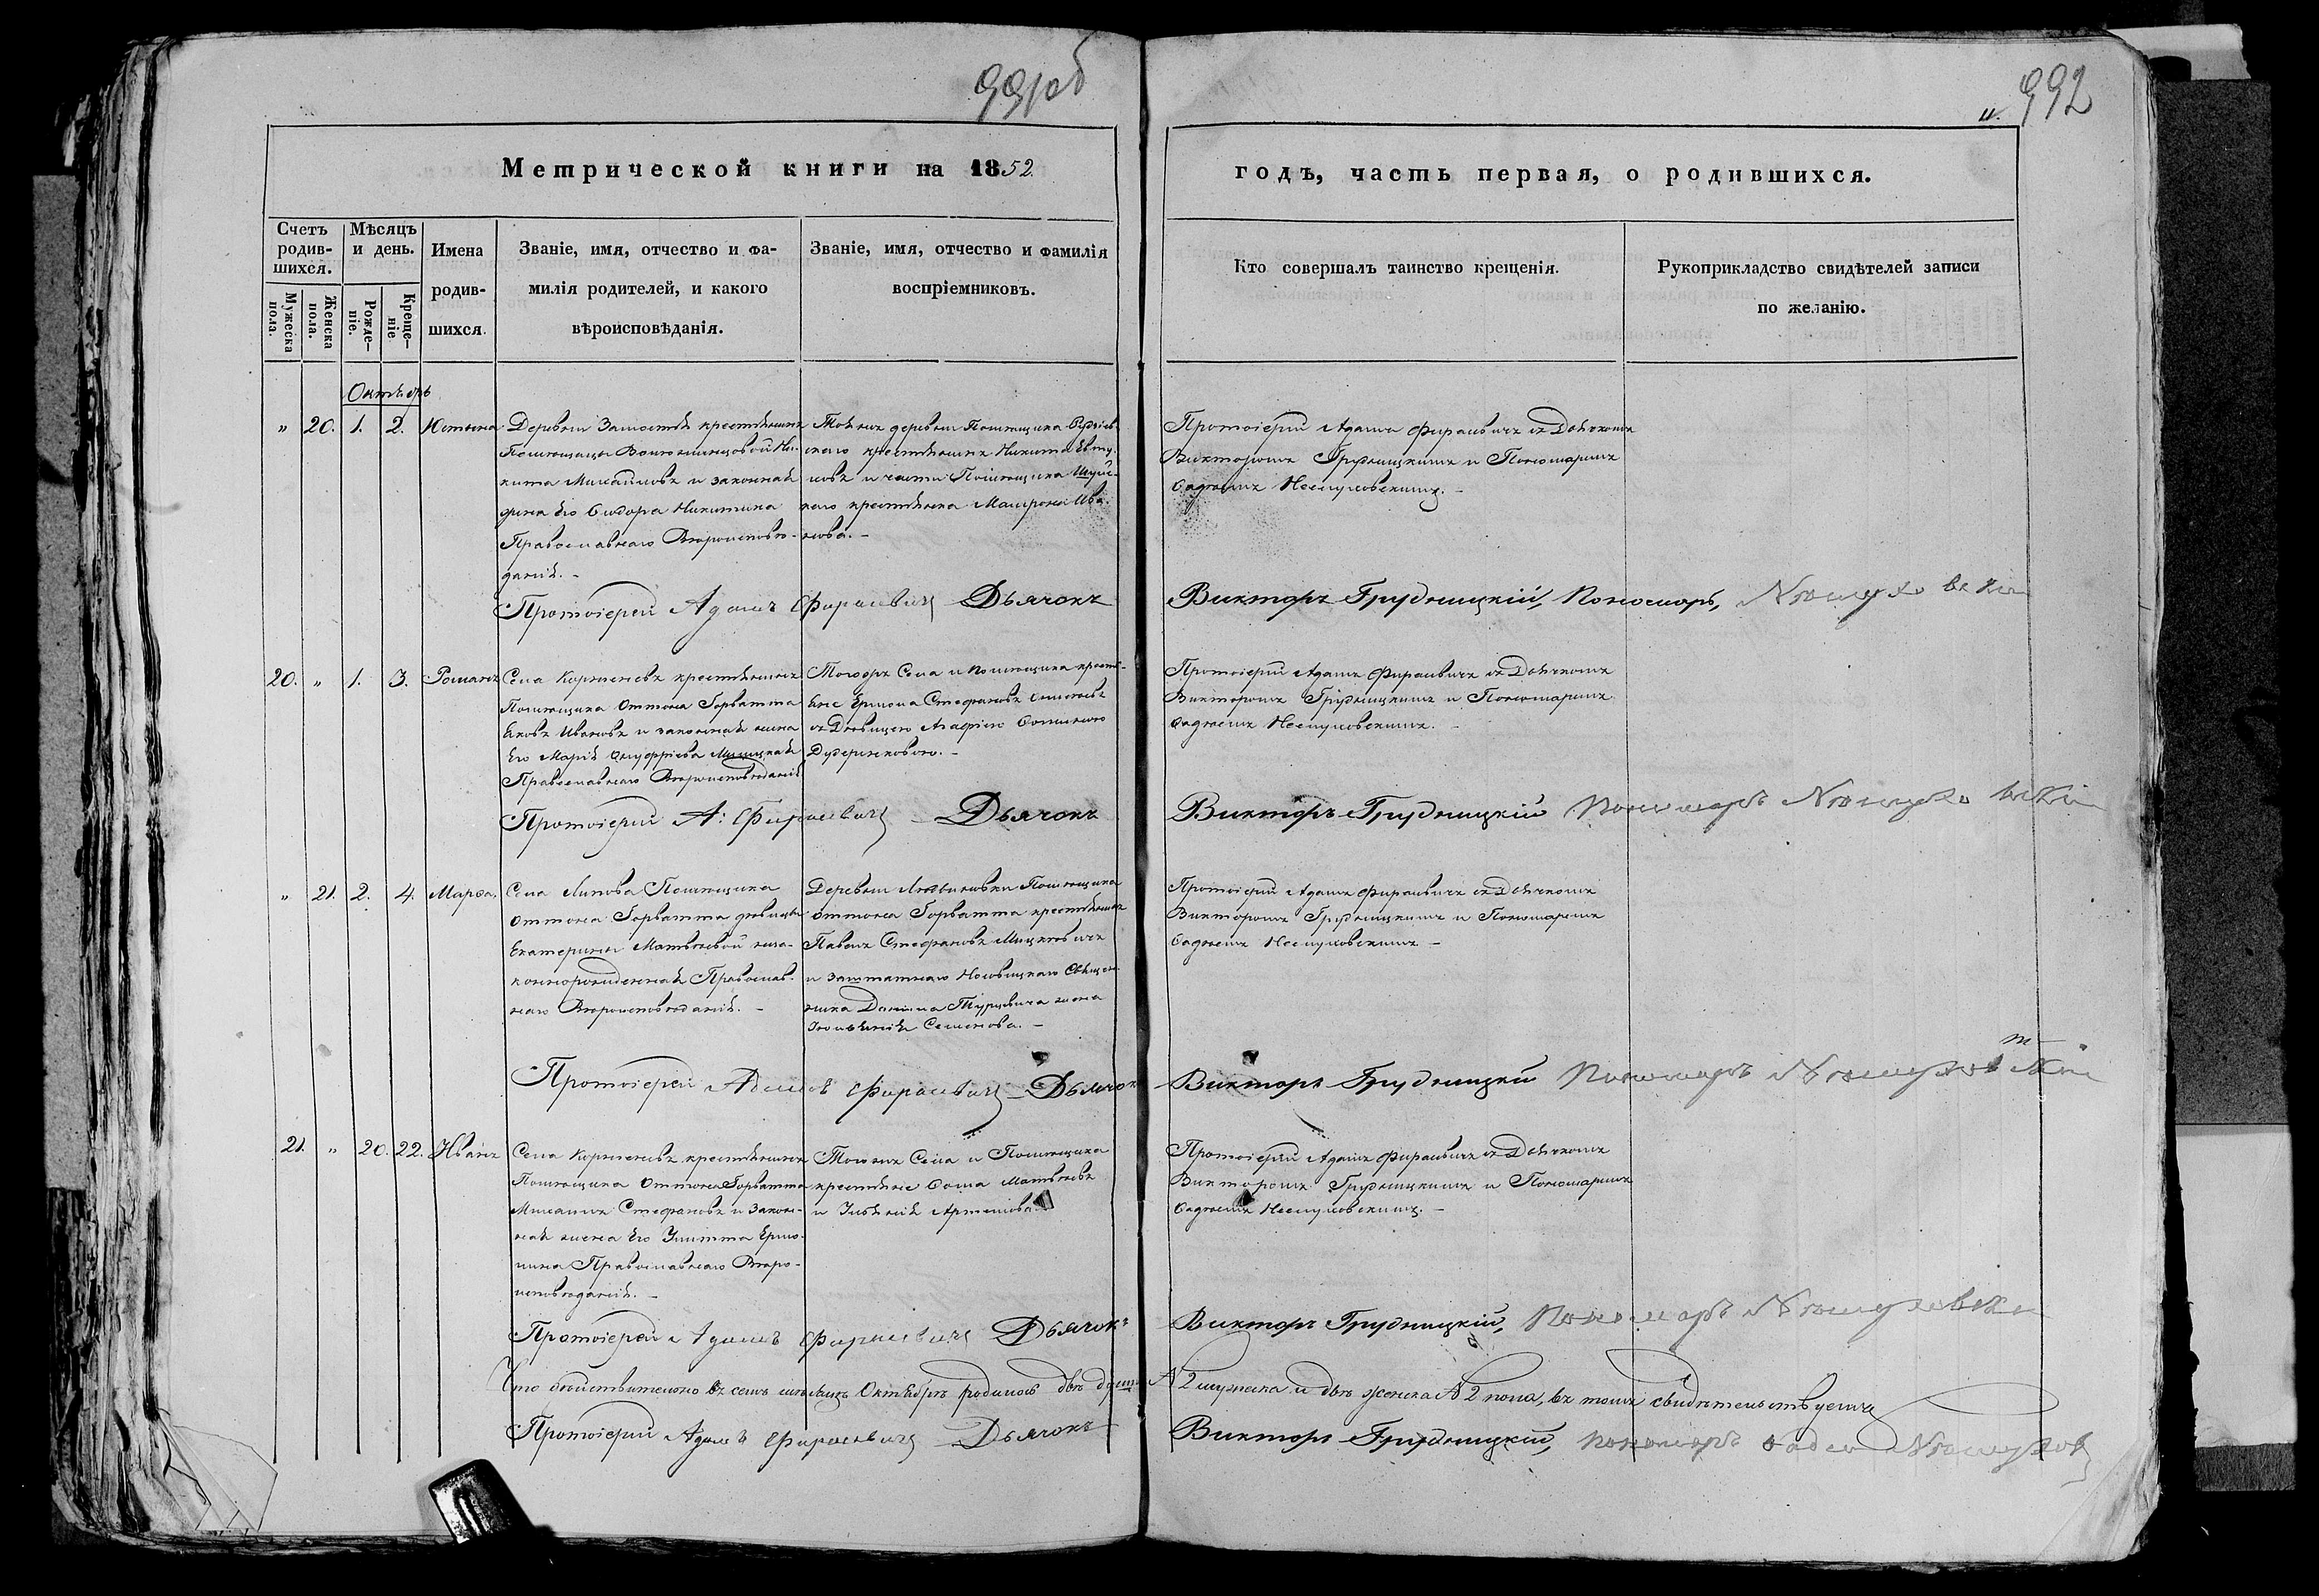 991об
992
11.
Метрической книги на 1852
годъ, часть первая, о родившихся.
Счетъ родив-шихся.
Мѣсяцъ и день.
Имена родив-шихся.
Званіе, имя, отчество и фа-
милія родителей, и какого
вѣроисповѣданія.
Званіе, имя, отчество и фамилія
воспріемниковъ.
Мужеска пола.
Женска пола.
Рожде-ніе.
Креще-ніе
Кто совершалъ таинство крещенія.
Рукоприкладство свидѣтелей записи
по желанію.
Октябрь
" 20. 1. 2. Устина
Деревни Замостя крестьянинъ
Помещицы Воинилицовой Ни-
кита Михайловъ и законная
жена Его Сидора Никитина
Православнаго Вероиспове-
данія. –
Той же деревни Помещика
скаго крестьянинъ Никита
новъ и части Помещика
каго крестьянка Матрона Ива-
нова. –
Протоіерей Адамъ Фираевичъ съ Дьячкомъ
Викторомъ Грудницкимъ и Пономаремъ
Фадеемъ Неслуховскимъ. –
Протоіерей Адамъ Фираевичъ Дьячокъ
Викторъ Грудницкій, Пономарь, Неслуховскій
20. " 1. 3. Романъ
Села Корженевъ крестьянинъ
Помещика Оттона Горватта
Яковъ Ивановъ и законная жена
Его Марія Онуфріева
Православнаго Вероисповеданія
Тогожъ Села и Помещика кресть-
яне Ермола Стефановъ
съ Девицею Агафіею
Протоіерей Адамъ Фираевичъ съ Дьячкомъ
Викторомъ Грудницкимъ и Пономаремъ
Фадеемъ Неслуховскимъ. –
Протоіерей А: Фираевичъ Дьячокъ
Викторъ Грудницкій Пономарь Неслуховскій
" 21. 2. 4. Марѳа.
Села Липова Помещика
Оттона Горватта девицы
Екатерины Матвеевой неза-
коннорожденная Православ-
наго Вероисповеданія. –
Деревни Помещика
Оттона Горватта крестьянинъ
Павелъ Стефановъ Мицкевичъ
и заштатнаго Священ-
ника Даниила Турцевича жена
Семенова. –
Протоіерей Адамъ Фираевичъ съ Дьячкомъ
Викторомъ Грудницкимъ и Пономаремъ
Фадеемъ Неслуховскимъ –
Протоіерей Адамъ Фираевичъ Дьячокъ
Викторъ Грудницкій Пономарь Неслуховскій
21. " 20. 22. Иванъ
Села Корженевъ крестьянинъ
Помещика Оттона Горватта
Михаилъ Стефановъ и закон-
ная жена Его Улитта Ермо-
лина Православнаго Веро-
исповеданія. –
Того же Села и Помещика
крестьяне Фома Матвеевъ
и Артемова.
Протоіерей Адамъ Фираевичъ съ Дьячкомъ
Викторомъ Грудницкимъ и Пономаремъ
Фадеемъ Неслуховскимъ. –
Протоіерей Адамъ Фираевичъ Дьячокъ
Викторъ Грудницкій, Пономарь Неслуховскій
Что действительно въ семъ месяцъ Октябръ родилось две душы
№ 2 мужеска и две женска № 2 пола, въ томъ свидетельствуемъ
Протоіерей Адамъ Фираевичъ Дьячокъ
Викторъ Грудницкій, пономарь Фадей Неслухов